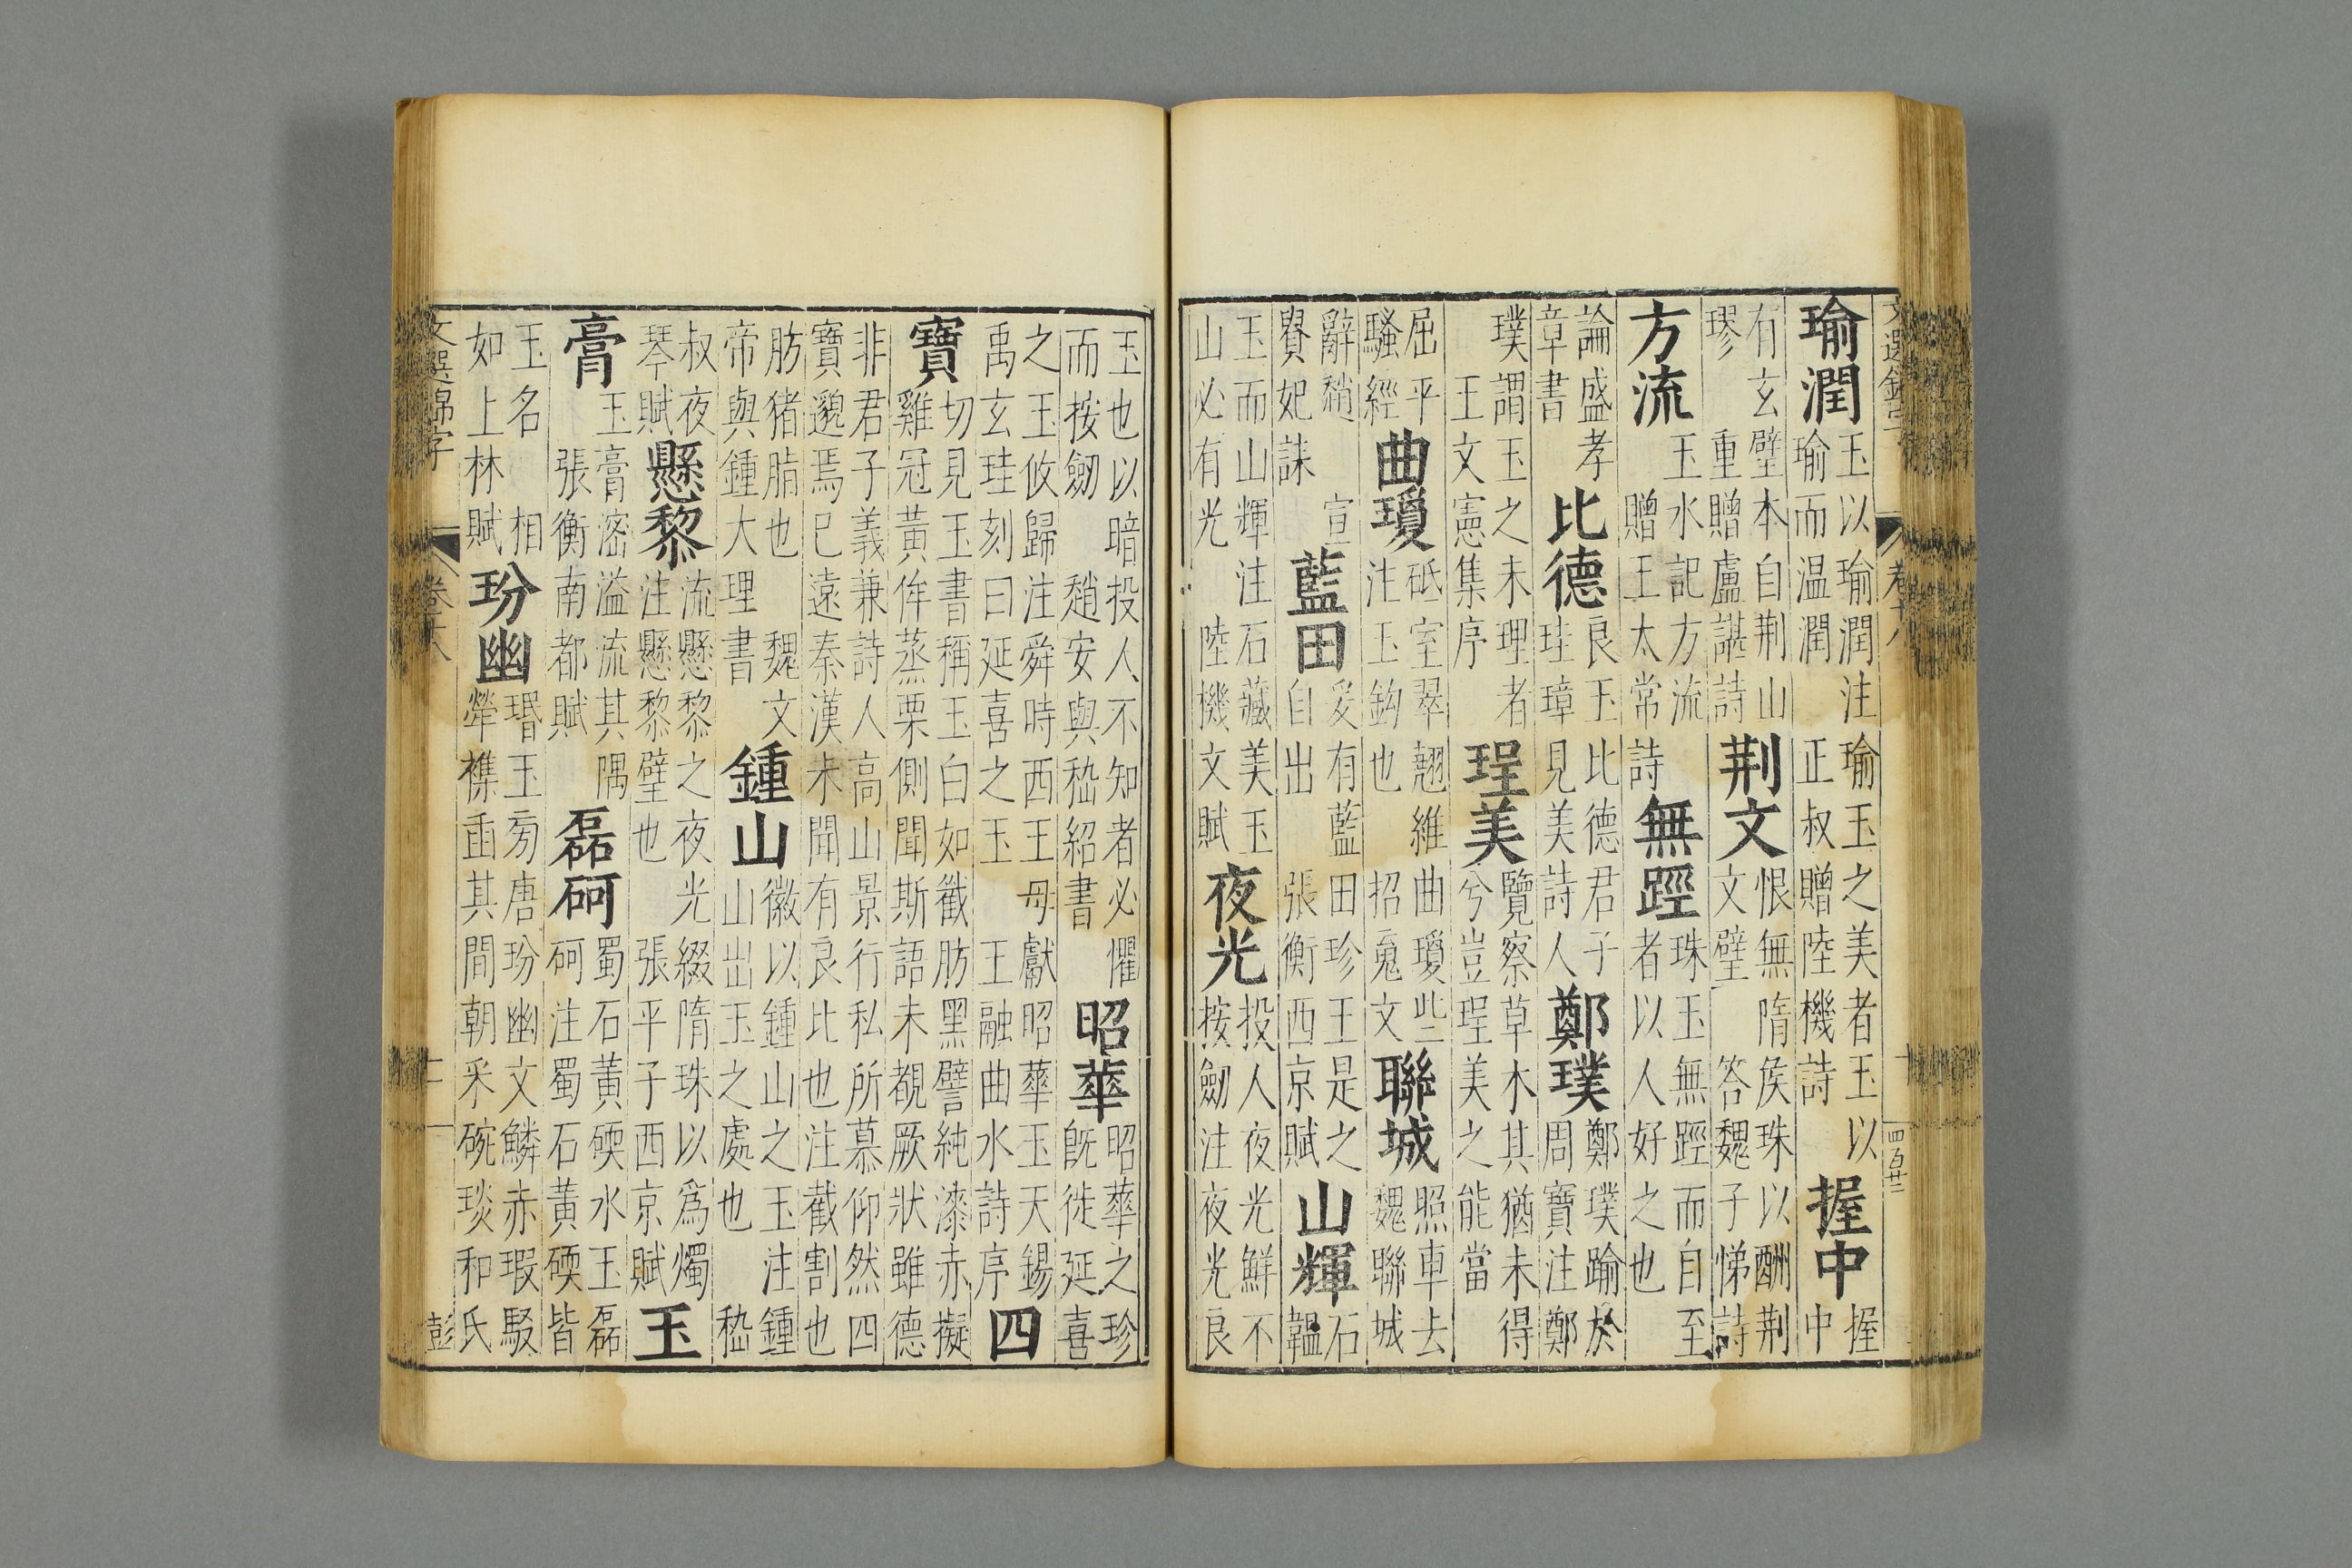 文選錦字 卷十八 四百廿二
瑜潤
玉以瑜潤注瑜玉之美者玉以
瑜而温潤 正叔贈陸機詩
握中
握
中
有玄璧本自荆山
璆 重贈盧諶詩
荆文
恨無隋侯珠以酬荆
文璧 答魏子悌詩
方流
玉水記方流
贈王太常詩
無踁
珠玉無踁而自至
者以人好之也
論盛孝
章書
比德
良玉比德君子
珪璋見美詩人
鄭璞
鄭璞踰於
周寶注鄭
璞謂玉之未理者
王文憲集序
珵美
覽察草木其猶未得
兮豈珵美之能當
屈平
騷經
曲瓊
砥室翠翹維曲瓊些
注玉鈎也 招䰟文
聯城
照車去
魏聯城
辭趙 宣
貴妃誄
藍田
爰有藍田珍玉是之
自出 張衡西京賦
山輝
石
韞
玉而山輝注石藏美玉
山必有光 陸機文賦
夜光
投人夜光鮮不
按劒注夜光良
玉也以暗投人不知者必懼
而按劒 趙安與嵇紹書
昭華
昭華之珍
既徙延喜
之玉攸歸注舜時西王母獻昭華玉天錫
禹玄珪刻曰延喜之玉 王融曲水詩序
四
寶
切見玉書稱玉白如截肪黑譬純漆赤擬
雞冠黃侔蒸栗側聞斯語未覩厥狀雖德
非君子義兼詩人高山景行私所慕仰然四
寶邈焉已遠秦漢未聞有良比也注截割也
肪猪脂也 魏文
帝與鍾大理書
鍾山
徽以鍾山之玉注鍾
山出玉之處也 嵇
叔夜
琴賦
懸黎
流懸黎之夜光綴隋珠以爲燭
注懸黎璧也 張平子西京賦
玉
膏
玉膏滵溢流其隅
張衡南都賦
磊砢
蜀石黃碝水玉磊
砢注蜀石黃碝皆
玉名 相
如上林賦
玢幽
瑉玉旁唐玢幽文鱗赤瑕駁
犖襍臿其間朝采碗琰和氏
文選錦字 卷十八 十一 彭